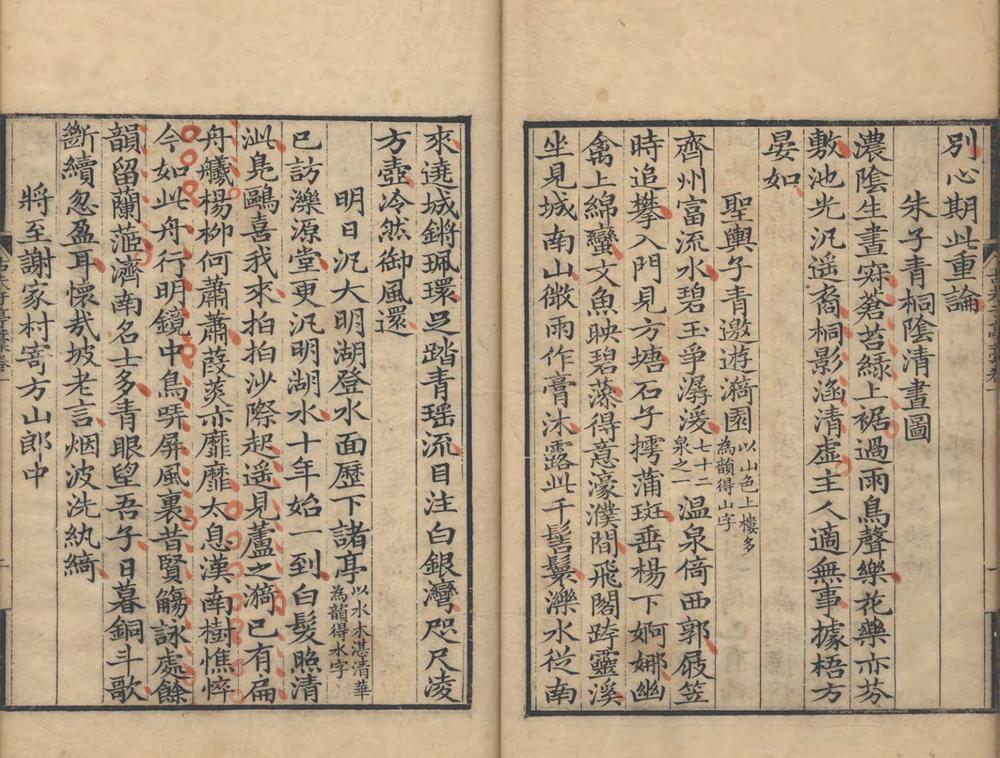 別心期此重論
朱子青桐陰清晝圖
濃陰生晝寐蒼苔綠上裾過雨鳥聲樂花藥亦芬
敷池光汎遥裔桐影涵清虚主人適無事據梧方
晏如
聖輿子青邀遊漪園以山色上樓多為韻得山字
齊州富流水碧玉爭潺湲七十二泉之一温泉倚西郭屐笠
時追攀入門見方塘石子摴蒲斑垂楊下婀娜幽
禽上綿蠻文魚映碧藻得意濠濮間飛閣跨靈溪
坐見城南山微雨作膏沐露此千髻鬟濼水從南
來遶城鏘珮環足踏青瑶流目注白銀灣咫尺凌
方壺泠然御風還
明日汎大明湖登水面歷下諸亭以水木湛清華為韻得水字
已訪濼源堂更汎明湖水十年始一到白髮照清
泚鳧鷗喜我來拍拍沙際起遥見蘆之漪已有扁
舟艤楊柳何蕭蕭葭菼亦靡靡太息漢南樹憔悴
今如此舟行明鏡中鳥哢屏風裏昔賢觴詠處餘
韻留蘭茝濟南名士多青眼望吾子日暮銅斗歌
斷續忽盈耳懷哉坡老言烟波洗紈綺
將至謝家村寄方山郎中